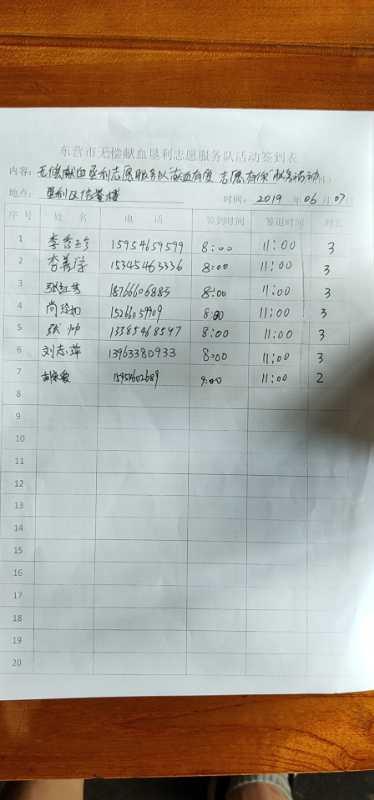 东营市无偿献血垦利志愿服务队活动签到表
内容：无偿献血垦利志愿服务队献血有爱 志愿有你 服务活动
地点： 垦利 时间： 2019 年 06 月 07日
序号 姓 名 电 话 签到时间 签退时间 时长
1 李秀 15954659599 8:00 11:00 3
2 15345463336 8:00 11:00 3
3 张红 18766606883 8:00 11:00 3
4 尚 8:00 11:00 3
5 张帅 13385468547 8:00 11:00 3
6 刘志萍 13963380933 8:00 11:00 3
7 9:00 11:00 2
8
9
10
11
12
13
14
15
16
17
18
19
20